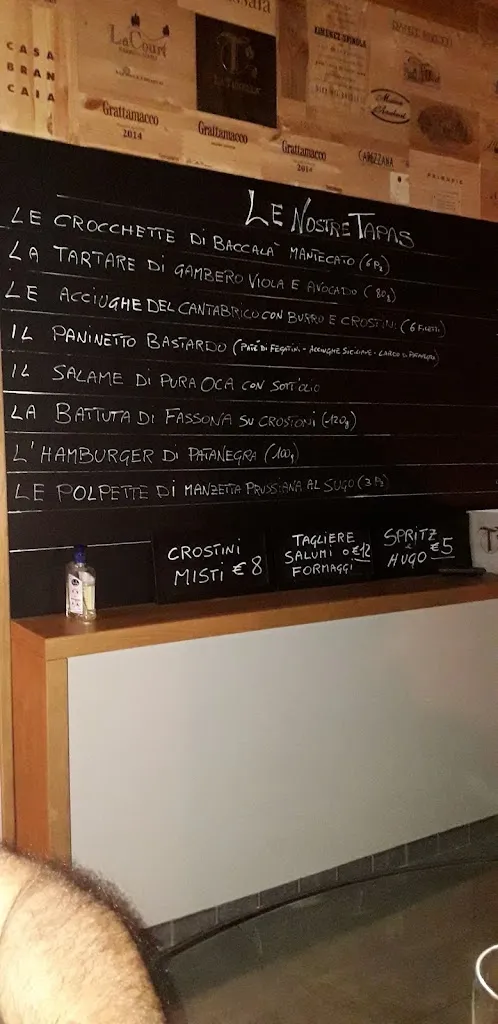 CASA
BRAN
CAIA
LaCourt
Grattamacco
2014
Grattamacco
Grattamacco
2014
CAPEZZANA
LE NOSTRE TAPAS
LE CROCCHETTE DI BACCALA' MANTECATO (6 PZ)
LA TARTARE DI GAMBERO VIOLA E AVOCADO (80g)
LE ACCIUGHE DEL CANTABRICO CON BURRO E CROSTINI (6 FILETTI)
IL PANINETTO BASTARDO (PATÈ DI FEGATINI - ACCIUGHE SICILIANE - LARDO DI PATANEGRA)
IL SALAME DI PURA OCA CON SOTT'OLIO
LA BATTUTA DI FASSONA SU CROSTONI (120g)
L'HAMBURGER DI PATANEGRA (100g)
LE POLPETTE DI MANZETTA PRUSSIANA AL SUGO (3 PZ)
CROSTINI
MISTI € 8
TAGLIERE
SALUMI O €12
FORMAGGI
SPRITZ
HUGO €5